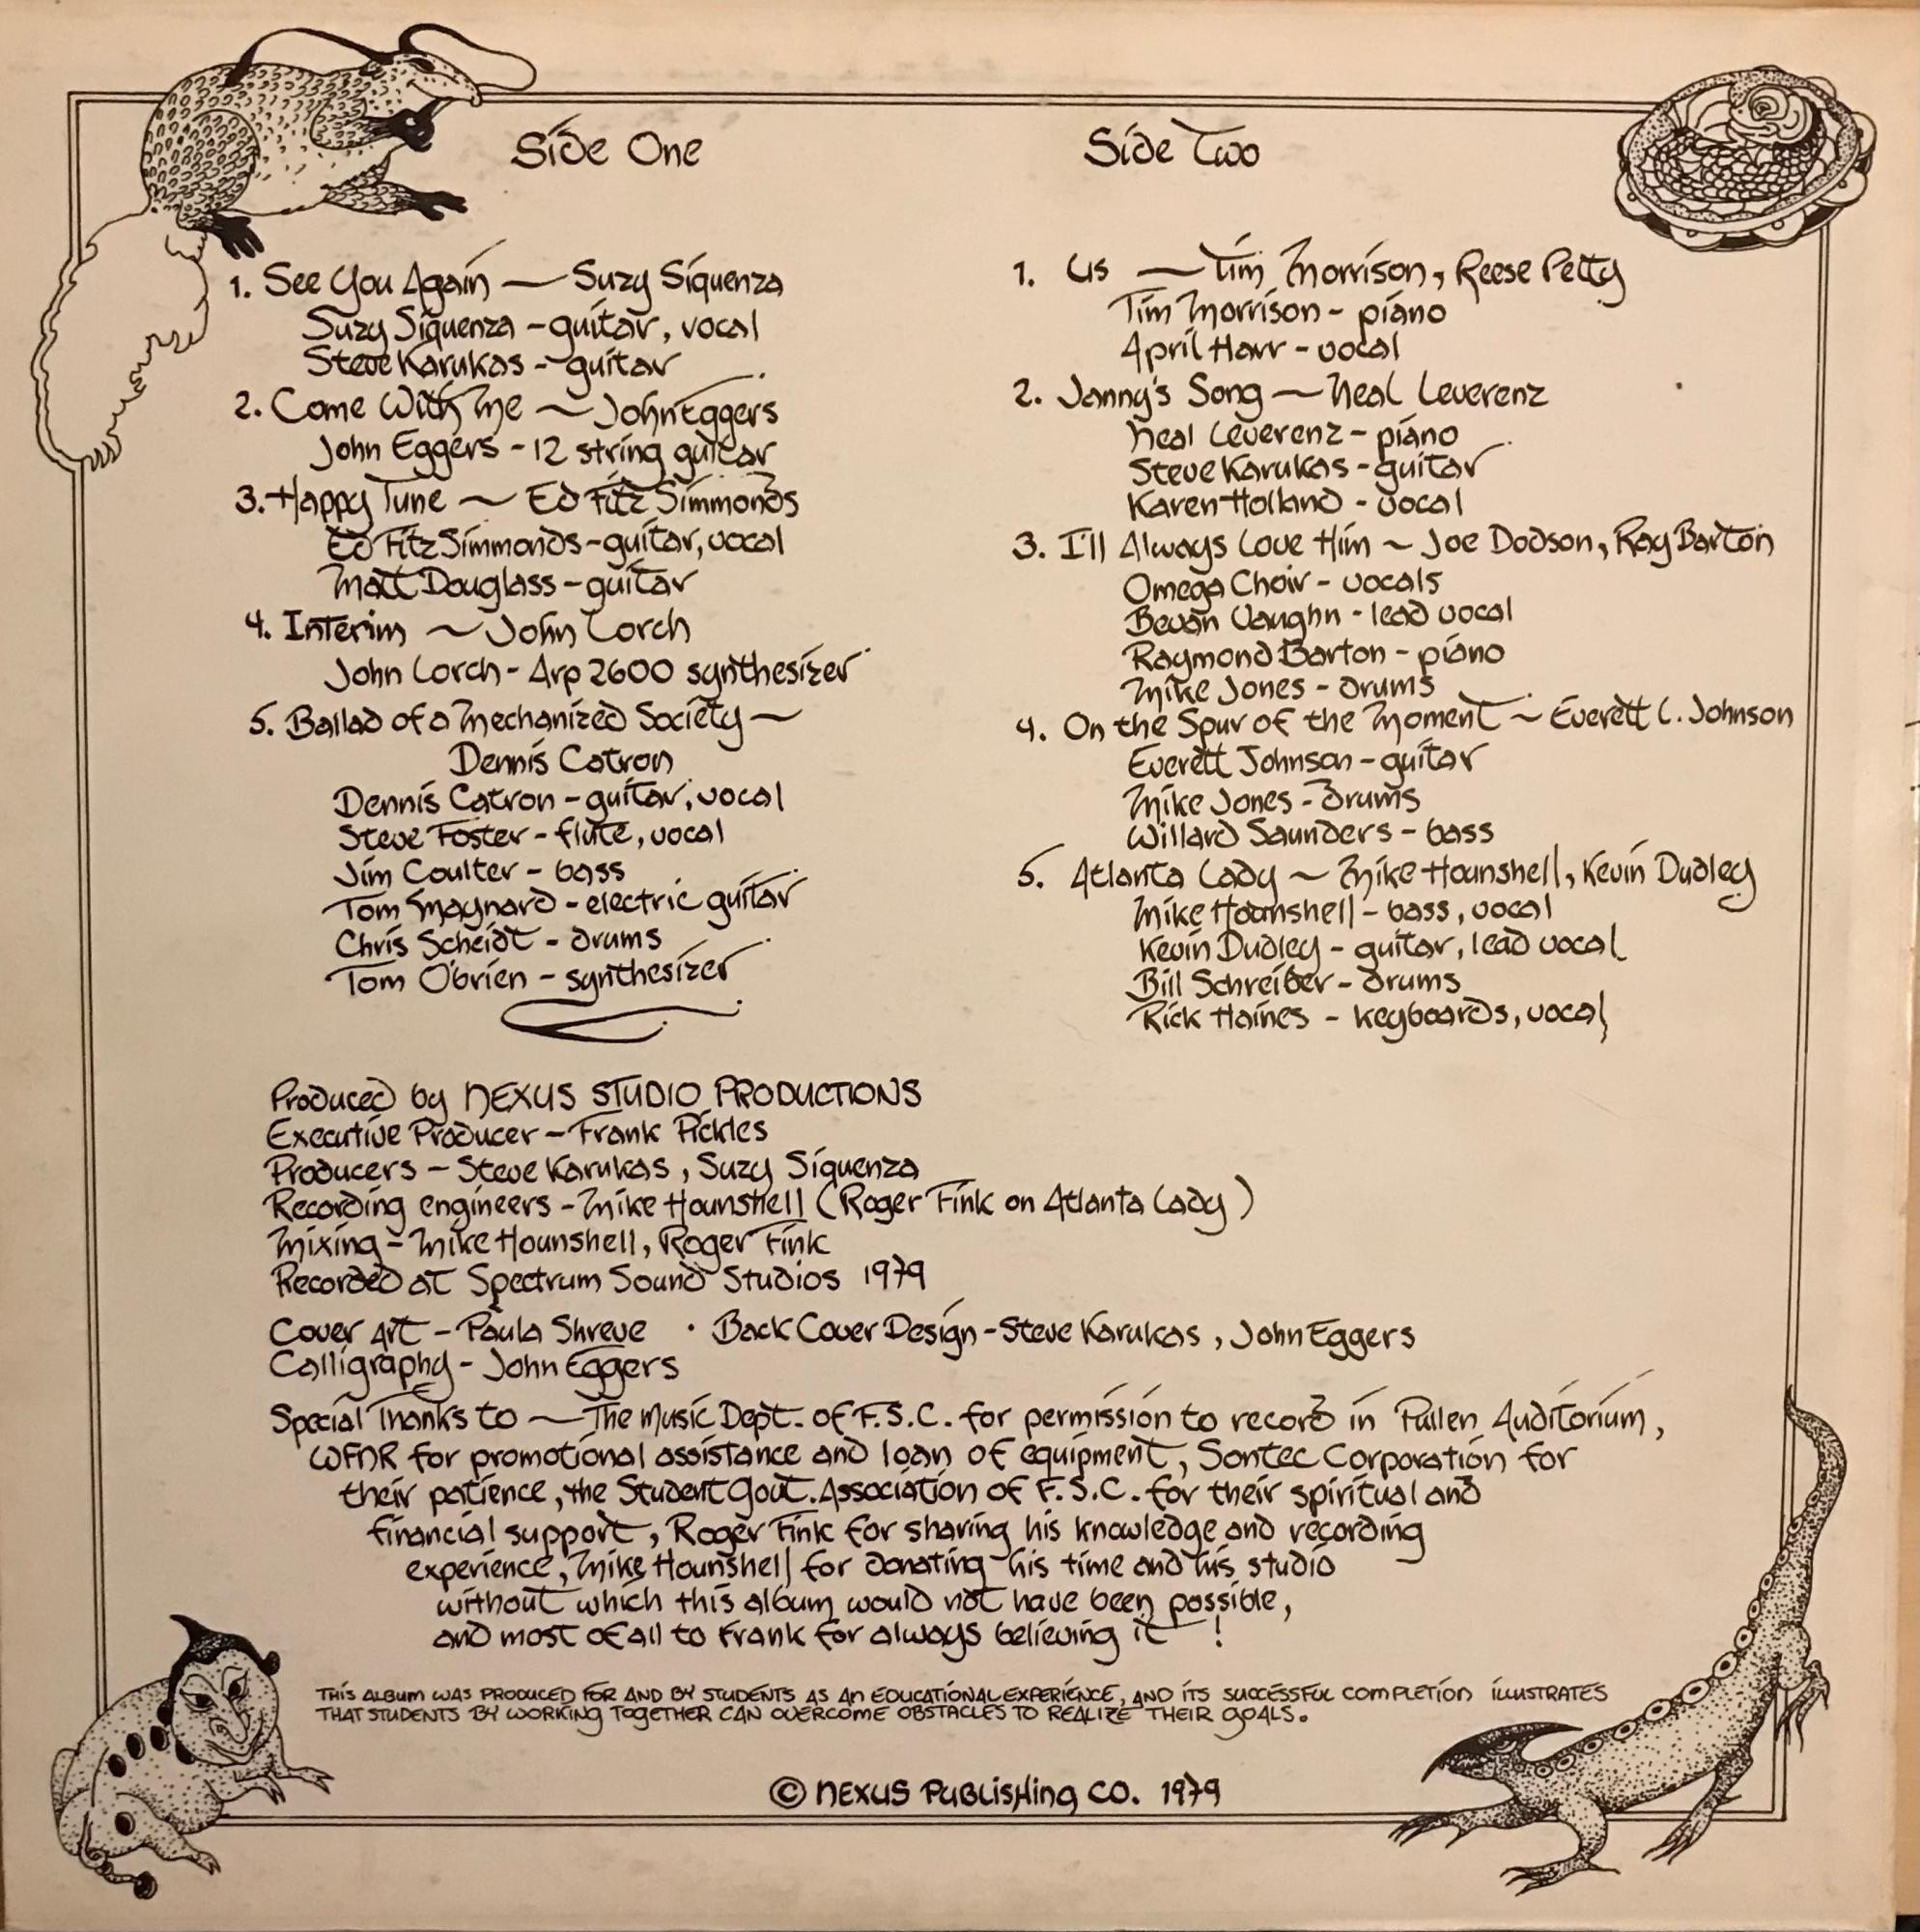 Side One
1. See You Again ~ Suzy Siquenza
Suzy Siguenza - guitar, vocal
Steve Karukas - guitar
2. Come With Me ~ John Eggers
John Eggers - 12 string guitar
3. Happy Tune ~ Ed FitzSimmonds
Ed FitzSimmonds - guitar, vocal
Matt Douglass - guitar
4. Interim ~ John Lorch
John Lorch - Arp 2600 synthesizer
5. Ballad of a Mechanized Society ~
Dennis Catron
Dennis Catron - guitar, vocal
Steve Foster - flute, vocal
Jim Coulter - bass
Tom Maynard - electric guitar
Chris Scheidt - drums
Tom O'brien - synthesizer
Side Two
1. Us ~ Tim Morrison, Reese Petty
Tim Morrison - piano
April Harr - vocal
2. Janny's Song ~ Neal Leverenz
Neal Leverenz - piano
Steve Karukas - guitar
Karen Holland - vocal
3. I'll Always Love Him ~ Joe Dodson, Ray Barton
Omega Choir - vocals
Bevan Vaughn - lead vocal
Raymond Barton - piano
Mike Jones - drums
4. On the Spur of the Moment ~ Everett L. Johnson
Everett Johnson - guitar
Mike Jones - drums
Willard Saunders - bass
5. Atlanta Lady ~ Mike Hounshell, Kevin Dudley
Mike Hounshell - bass, vocal
Kevin Dudley - guitar, lead vocal
Bill Schreiber - drums
Rick Haines - keyboards, vocal
Produced by NEXUS STUDIO PRODUCTIONS
Executive Producer - Frank Pickles
Producers - Steve Karukas, Suzy Siguenza
Recording engineers - Mike Hounshell (Roger Fink on Atlanta Lady)
Mixing - Mike Hounshell, Roger Fink
Recorded at Spectrum Sound Studios 1979
Cover Art - Paula Shreve · Back Cover Design - Steve Karukas, John Eggers
Calligraphy - John Eggers
Special Thanks to ~ The Music Dept. of F.S.C. for permission to record in Pullen Auditorium,
WFNR for promotional assistance and loan of equipment, Sontec Corporation for
their patience, the Student Govt. Association of F.S.C. for their spiritual and
financial support, Roger Fink for sharing his knowledge and recording
experience, Mike Hounshell for donating his time and his studio
without which this album would not have been possible,
and most of all to Frank for always believing it!
THIS ALBUM WAS PRODUCED FOR AND BY STUDENTS AS AN EDUCATIONAL EXPERIENCE, AND ITS SUCCESSFUL COMPLETION ILLUSTRATES
THAT STUDENTS BY WORKING TOGETHER CAN OVERCOME OBSTACLES TO REALIZE THEIR GOALS.
© NEXUS PUBLISHING CO. 1979